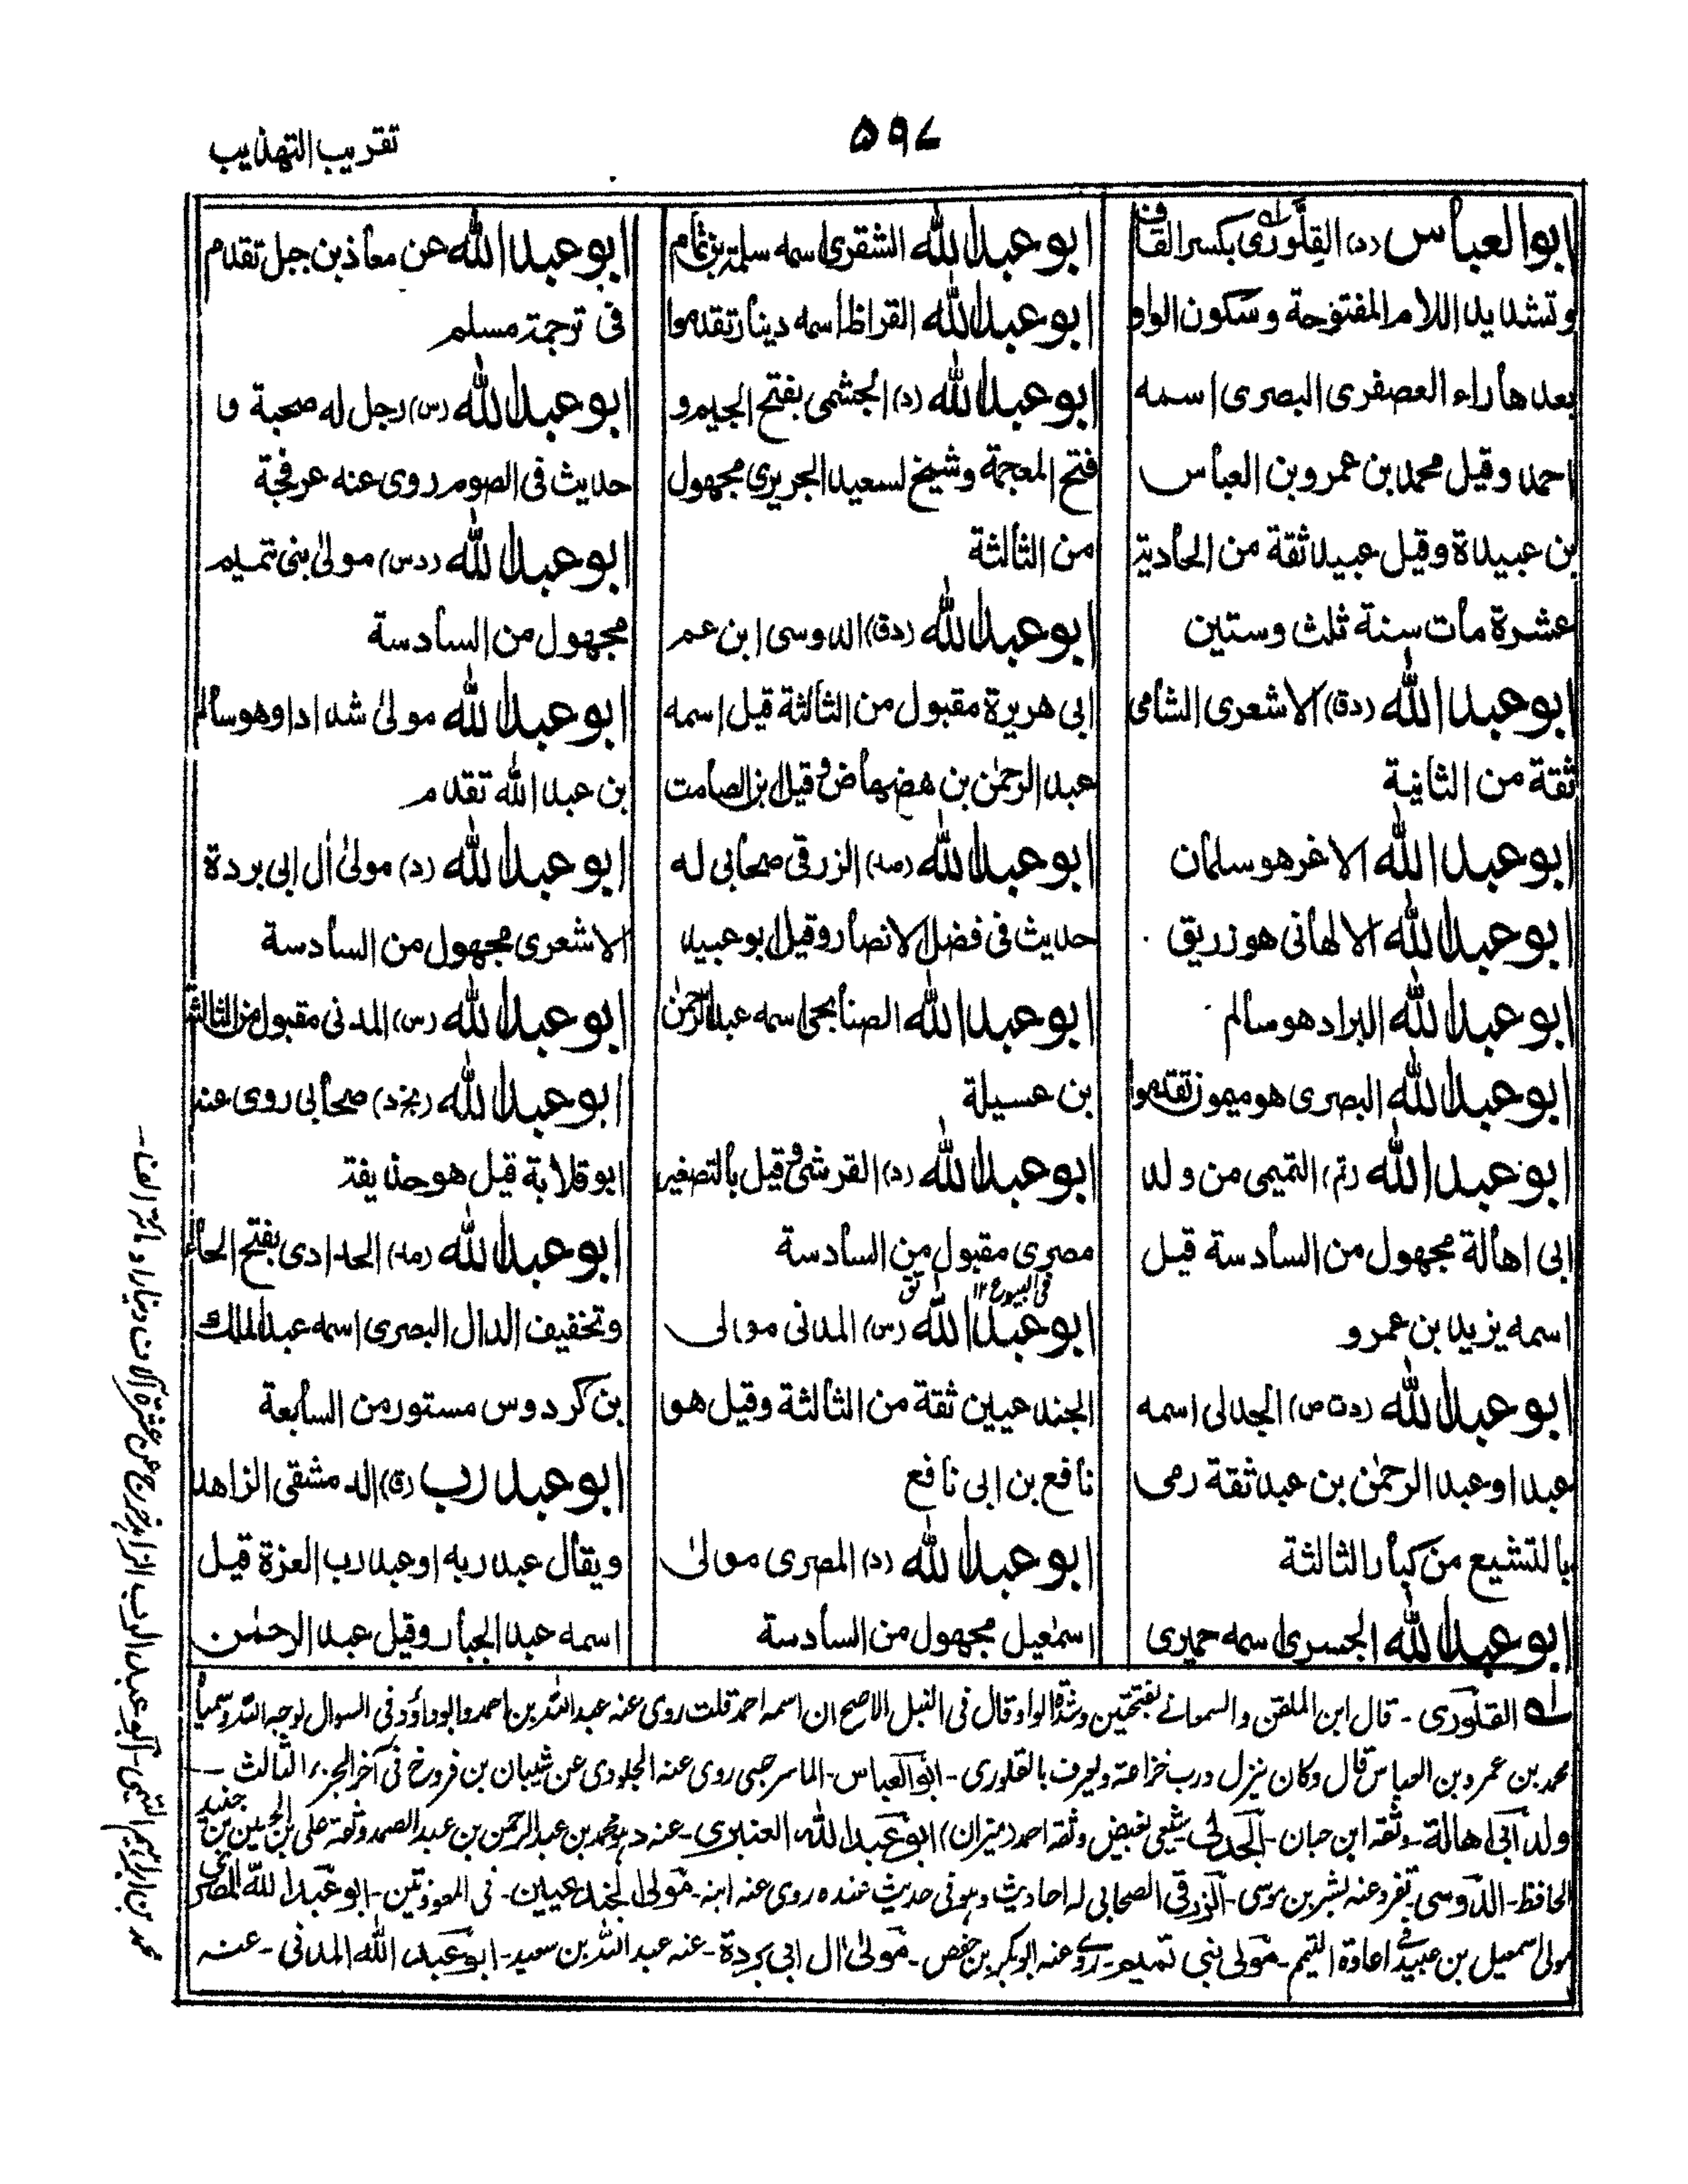 ۵۹۷
تقريب التهذيب
ابو العباس (د) القِلَّوْرى بكسر القاف
وتشديد اللام المفتوحة وسكون الواو
بعدها راء العصفرى البصرى اسمه
احمد وقيل محمد بن عمرو بن العباس
بن عبيدة وقيل عبيد ثقة من الحادية
عشرة مات سنة ثلث وستين
ابو عبد الله (دق) الاشعرى الشامى
ثقة من الثانية
ابو عبد الله الاغر هو سلمان
ابو عبد الله الالهانى هو زريق
ابو عبد الله البراد هو سالم
ابو عبد الله البصرى هو ميمون تقدموا
ابو عبد الله (تم) التميمى من ولد
ابى اهالة مجهول من السادسة قيل
اسمه يزيد بن عمرو
ابو عبد الله (دت ص) الجدلى اسمه
عبد او عبد الرحمٰن بن عبد ثقة رمى
بالتشيع من كبار الثالثة
ابو عبد الله الجسرى اسمه حميرى
ابو عبد الله الشقرى اسمه سلمة بن تمام
ابو عبد الله القراظ اسمه دينار تقدموا
ابو عبد الله (د) الجشمى بفتح الجيم و
فتح المعجمة وشيخ لسعيد الجريرى مجهول
من الثالثة
ابو عبد الله (دق) الدوسى ابن عم
ابى هريرة مقبول من الثالثة قيل اسمه
عبد الرحمٰن بن هضهاض وقيل ابن الصامت
ابو عبد الله (مد) الزرقى صحابى له
حديث فى فضل الانصار وقيل ابو عبيد
ابو عبد الله الصنابحى اسمه عبد الرحمٰن
بن عسيلة
ابو عبد الله (د) القرشى وقيل بالتصغير
مصرى مقبول من السادسة
فى البيوع ١٢ تق
ابو عبد الله (س) المدنى مولى
الجندعيين ثقة من الثالثة وقيل هو
نافع بن ابى نافع
ابو عبد الله (د) المصرى مولىٰ
اسمٰعيل مجهول من السادسة
ابو عبد الله عن معاذ بن جبل تقدم
فى ترجمة مسلم
ابو عبد الله (س) رجل له صحبة و
حديث فى الصوم روى عنه عرفجة
ابو عبد الله (دس) مولىٰ بنى تميم
مجهول من السادسة
ابو عبد الله مولىٰ شداد وهو سالم
بن عبد الله تقدم
ابو عبد الله (د) مولىٰ اٰل ابى بردة
الاشعرى مجهول من السادسة
ابو عبد الله (س) المدنى مقبول من الثالثة
ابو عبد الله (بخ د) صحابى روى عنه
ابو قلابة قيل هو حذيفة
ابو عبد الله (مد) الحدادى بفتح الحاء
وتخفيف الدال البصرى اسمه عبد الملك
بن كردوس مستور من السابعة
ابو عبد رب (ق) الدمشقى الزاهد
ويقال عبد ربه او عبد رب العزة قيل
اسمه عبد الجبار وقيل عبد الرحمٰن
له القلورى - قال ابن الملقن والسمعانے بفتحتين وشدة الواو قال فى النبل الاصح ان اسمه احمد قلت روى عنه عبد الله بن احمد وابو داؤد فى السوال لوجه الله وسمياه
محمد بن عمرو بن العباس قال وكان ينزل درب خزاعة ويعرف بالقلورى - ابو العباس - الماسرجسى روى عنه الجلودى عن شيبان بن فروخ فى آخر الجزء الثالث -
ولد ابى اهالة - وثقه ابن حبان - الجدلى شيعى بغيض وثقه احمد (ميزان) ابو عبد الله العنبرى - عنه د هو محمد بن عبد الرحمن بن عبد الصمد وثقه على بن الحسين بن جنيد
الحافظ - الدوسى تفرد عنه بشر بن موسى - الزرقى الصحابى له احاديث وهو فى حديث عنده روى عنه ابنه - مولى الجندعيين - فى المعوذتين - ابو عبد الله المصرى
مولى اسمعيل بن عبيد فى اعادة التيمم - مولى بنى تميم - روى عنه ابو بكر بن حفص - مولىٰ اٰل ابى بردة - عنه عبد الله بن سعيد - ابو عبد الله المدنى - عنه
محمد بن ابراهيم التيمى - ابو عبد الرب الزاهد